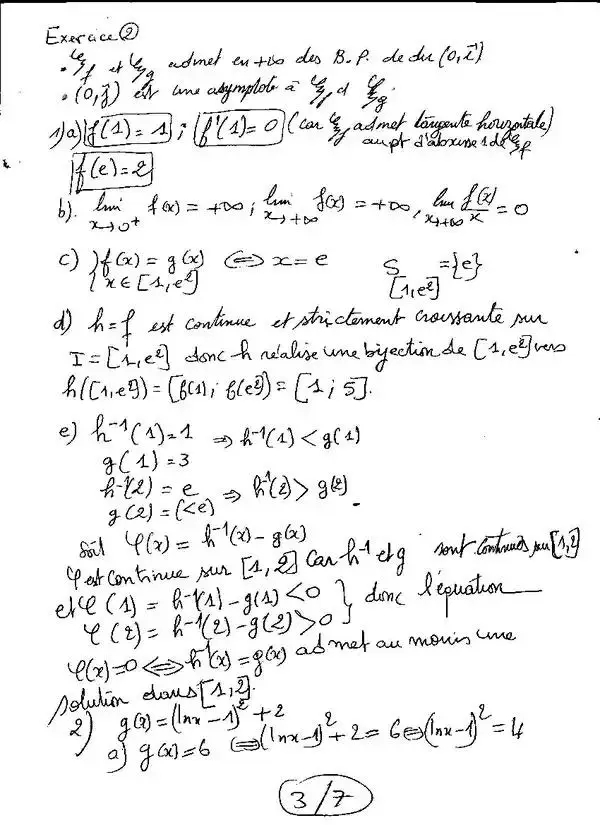 Exercice ②
• 𝒞f et 𝒞g admet en +∞ des B.P. de dir (0,i⃗)
• (0,j⃗) est une asymptote à 𝒞f et 𝒞g.
1)a) f(1)=1 ; f'(1)=0 (car 𝒞f admet tangente horizontale)
au pt d'abscisse 1 de 𝒞f
f(e)=2
b). lim x→0⁺ f(x)=+∞ ; lim x→+∞ f(x)=+∞, lim x→+∞ f(x)/x = 0
c) { f(x)=g(x) ⟺ x=e S[1,e²] = {e}
{ x∈[1,e²]
d) h=f est continue et strictement croissante sur
I=[1,e²] donc h réalise une bijection de [1,e²] vers
h([1,e²])=[f(1); f(e²)]=[1;5].
e) h⁻¹(1)=1 ⇒ h⁻¹(1)<g(1)
g(1)=3
h⁻¹(2)=e ⇒ h⁻¹(2)>g(2)
g(2)=(<e)
Soit φ(x)=h⁻¹(x)-g(x)
φ est continue sur [1,2] car h⁻¹ et g sont continues sur [1,2]
et φ(1)=h⁻¹(1)-g(1)<0 } donc l'équation
φ(2)=h⁻¹(2)-g(2)>0 }
φ(x)=0 ⟺ h⁻¹(x)=g(x) admet au moins une
solution dans [1,2].
2) g(x)=(lnx-1)²+2
a) g(x)=6 ⟺ (lnx-1)²+2=6 ⟺ (lnx-1)²=4
3/7